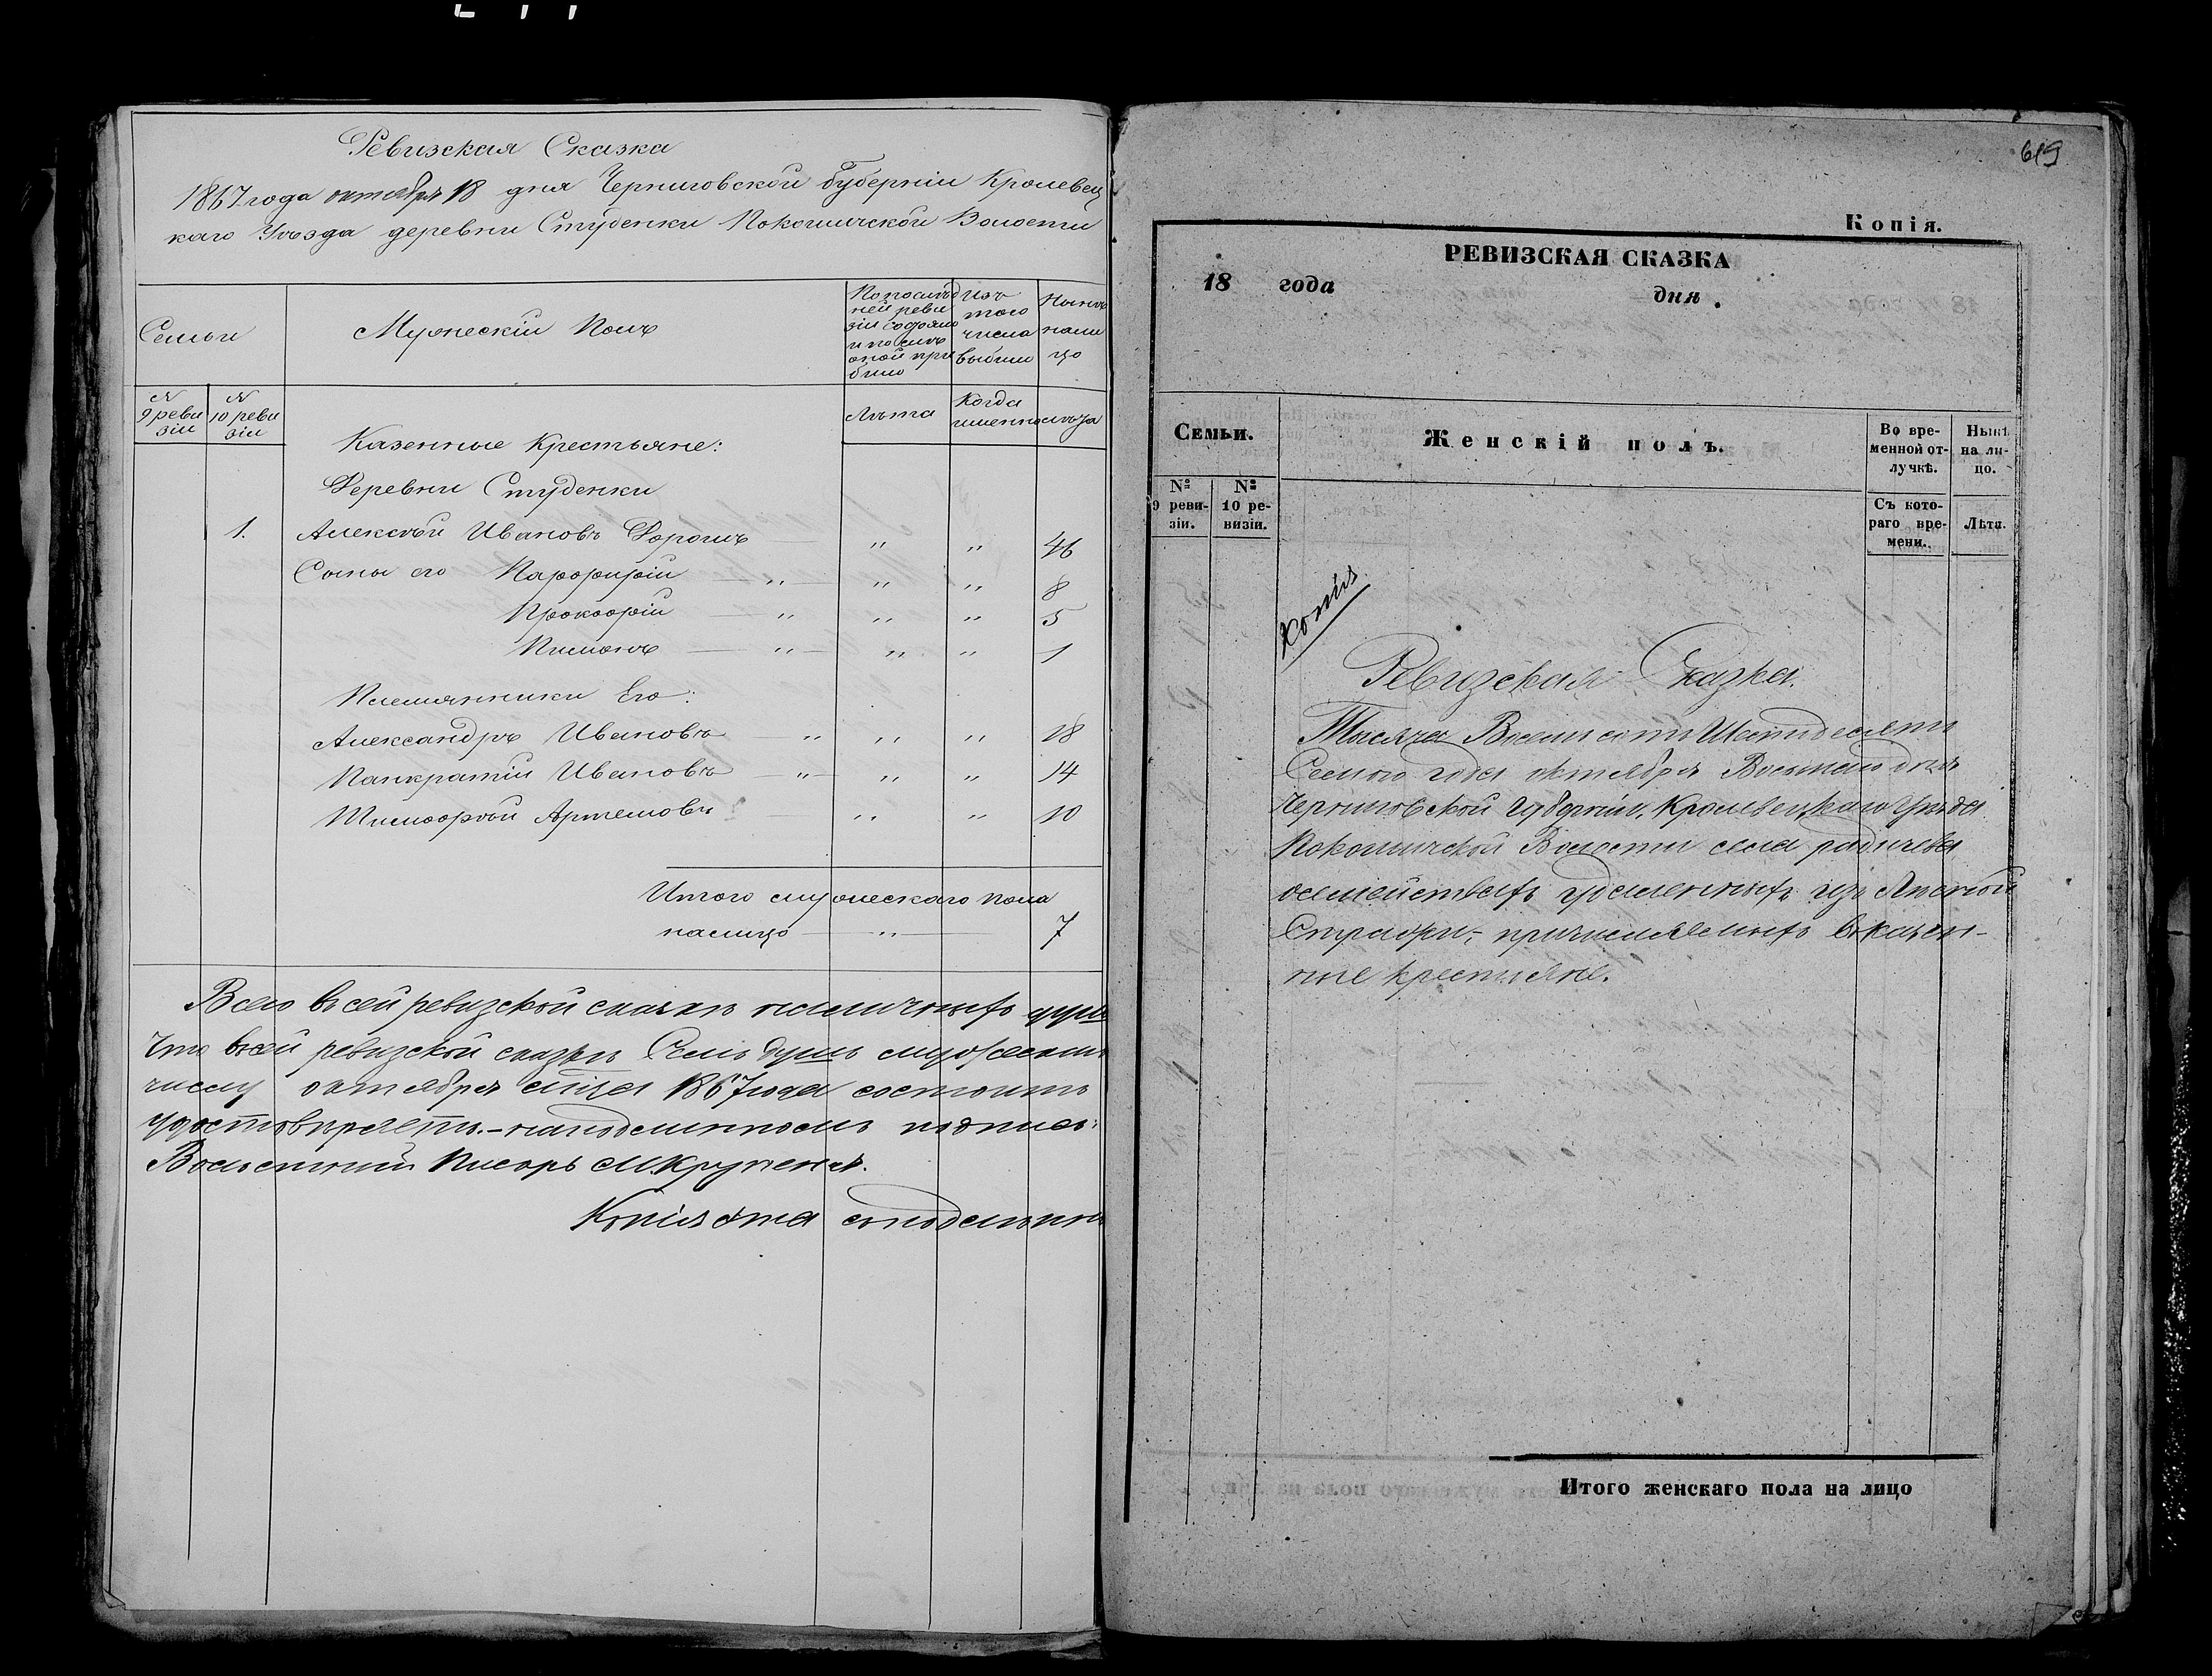 Ревизская Сказка
1867 года октября 18 дня Черниговской Губерніи Кролевец
каго Уѣзда деревни Студенки Покошичской Волости
Семьи
Мужескій Полъ
По послѣд
ней реви
зіи состояло
и послѣ
оной при
было
Изъ
того
числа
выбыли
Нынѣ
нали
цо
N
9 реви
зіи
N
10 реви
зіи
Лѣта
Когда
именно
лѣта
Казенные Крестьяне:
Деревни Студенки
1. Алексѣй Ивановъ " " 46
Сыны его Парфирій " " " 8
Прокофій " " " 5
" " " 1
Племянники Его:
Александръ Ивановъ " " " 18
Панкратій Ивановъ " " " 14
Тимофей Артемовъ " " 10
Итого мужескаго пола
налицо " 7
Всего в сей ревизской сказкѣ наличныхъ душъ
Что в сей ревизской сказкѣ Семь душъ мужескихъ
числу октября 1867 года состоитъ
Волостный Писарь
619
Копія.
РЕВИЗСКАЯ СКАЗКА
18 года дня .
Семьи.
Женскій полъ.
Во вре-
менной от-
лучкѣ.
Нынѣ
на ли-
цо.
№
9 реви-
зіи.
№
10 ре-
визіи.
Съ кото-
раго вре-
мени.
Лѣта.
Копія
Ревизская Сказка.
Тысяча Восемьсотъ Шестдесятъ
Семого года октября дня
Черниговской Губерніи, Кролевецкаго Уѣзда
Покошичской Волости села Радичева
о семействахъ уволенныхъ изъ Лѣсной
Стражи, причисляемыхъ в казен-
ные крестьяне.
Итого женскаго пола на лицо